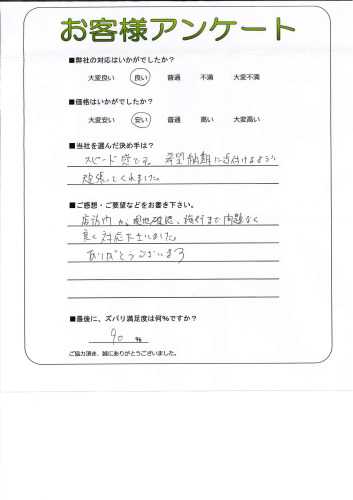 お客様アンケート
■弊社の対応はいかがでしたか？
大変良い 良い 普通 不満 大変不満
■価格はいかがでしたか？
大変安い 安い 普通 高い 大変高い
■当社を選んだ決め手は？
スピード感です。希望納期に近付けるように
頑張ってくれました。
■ご感想・ご要望などをお書き下さい。
店内から、現地確認、施行まで問題なく
良く対応下さいました。
ありがとうございます
■最後に、ズバリ満足度は何%ですか？
90 %
ご協力頂き、誠にありがとうございました。